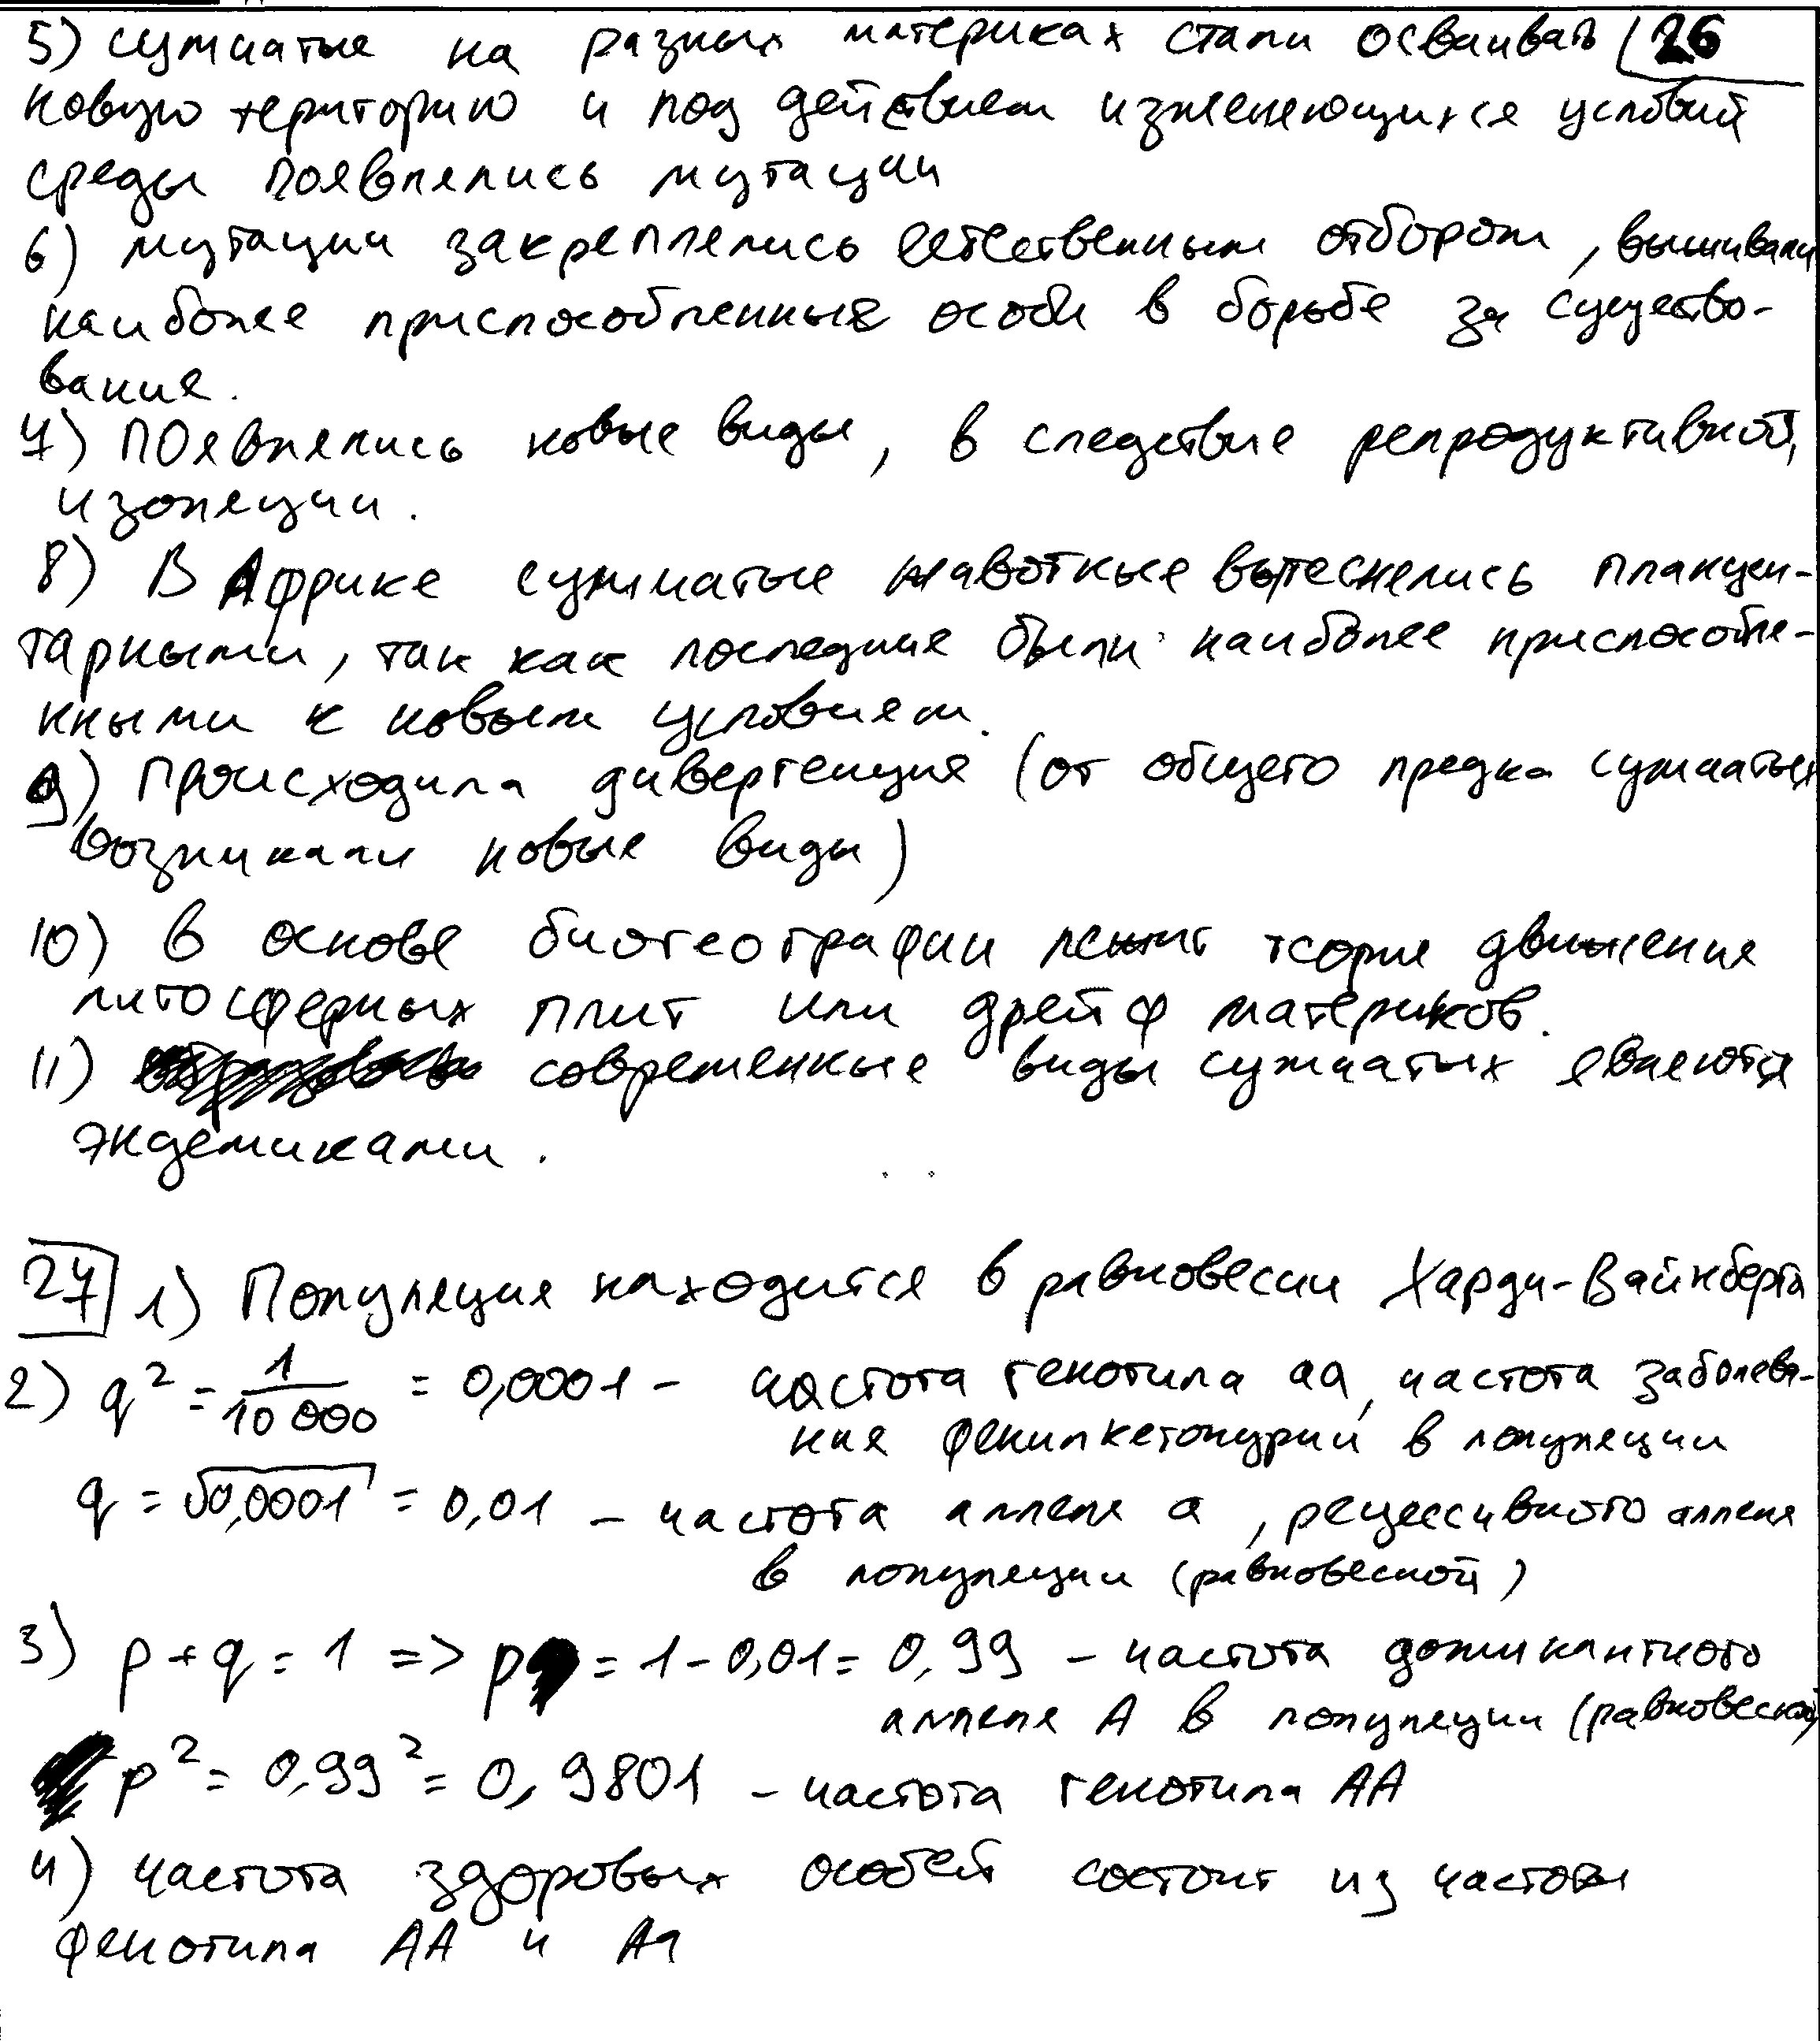 5) сумчатые на разных материках стали осваивать 26
новую територию и под действием изменяющихся условий
среды появлялись мутации
6) мутации закреплялись естественным отбором, выживали
наиболее приспособленные особи в борьбе за существо-
вание.
7) Появлялись новые виды, в следствие репродуктивной
изоляции.
8) В Африке сумчатые животные вытеснялись плацен-
тарными, так как последние были наиболее приспособле-
нными к новым условиям.
9) Происходила дивергенция (от общего предка сумчатых
возникали новые виды)
10) в основе биогеографии лежит теория движения
литосферных плит или дрейф материков.
11) современные виды сумчатых являются
эндемиками.
27 1) Популяция находится в равновесии Харди-Вайнберга
2) q² = 1/10 000 = 0,0001 - частота генотипа аа, частота заболева-
ния фенилкетонурии в популяции
q = √0,0001 = 0,01 - частота аллеля а, рецессивного аллеля
в популяции (равновесной)
3) p + q = 1 => p = 1 - 0,01 = 0,99 - частота доминантного
аллеля А в популяции (равновесной)
p² = 0,99² = 0,9801 - частота генотипа АА
4) частота здоровых особей состоит из частоты
фенотипа АА и Аа